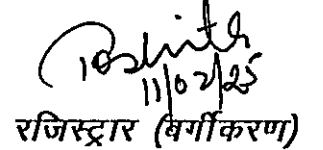 11/02/25
रजिस्ट्रार (वर्गीकरण)